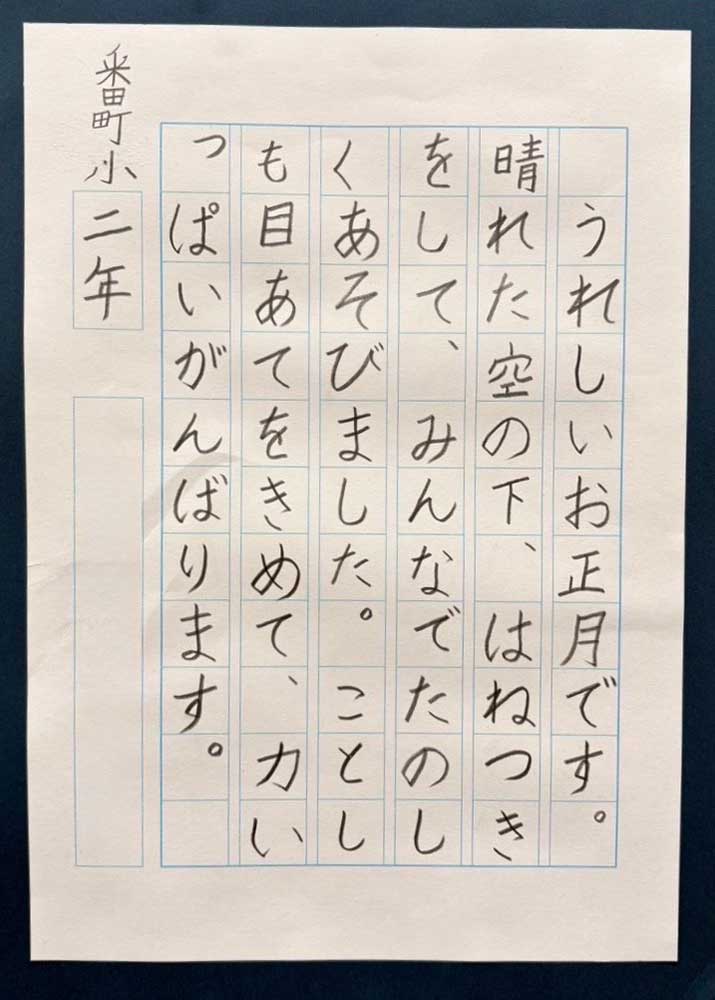 うれしいお正月です。
晴れた空の下、はねつき
をして、みんなでたのし
くあそびました。ことし
も目あてをきめて、力い
っぱいがんばります。
番町小二年